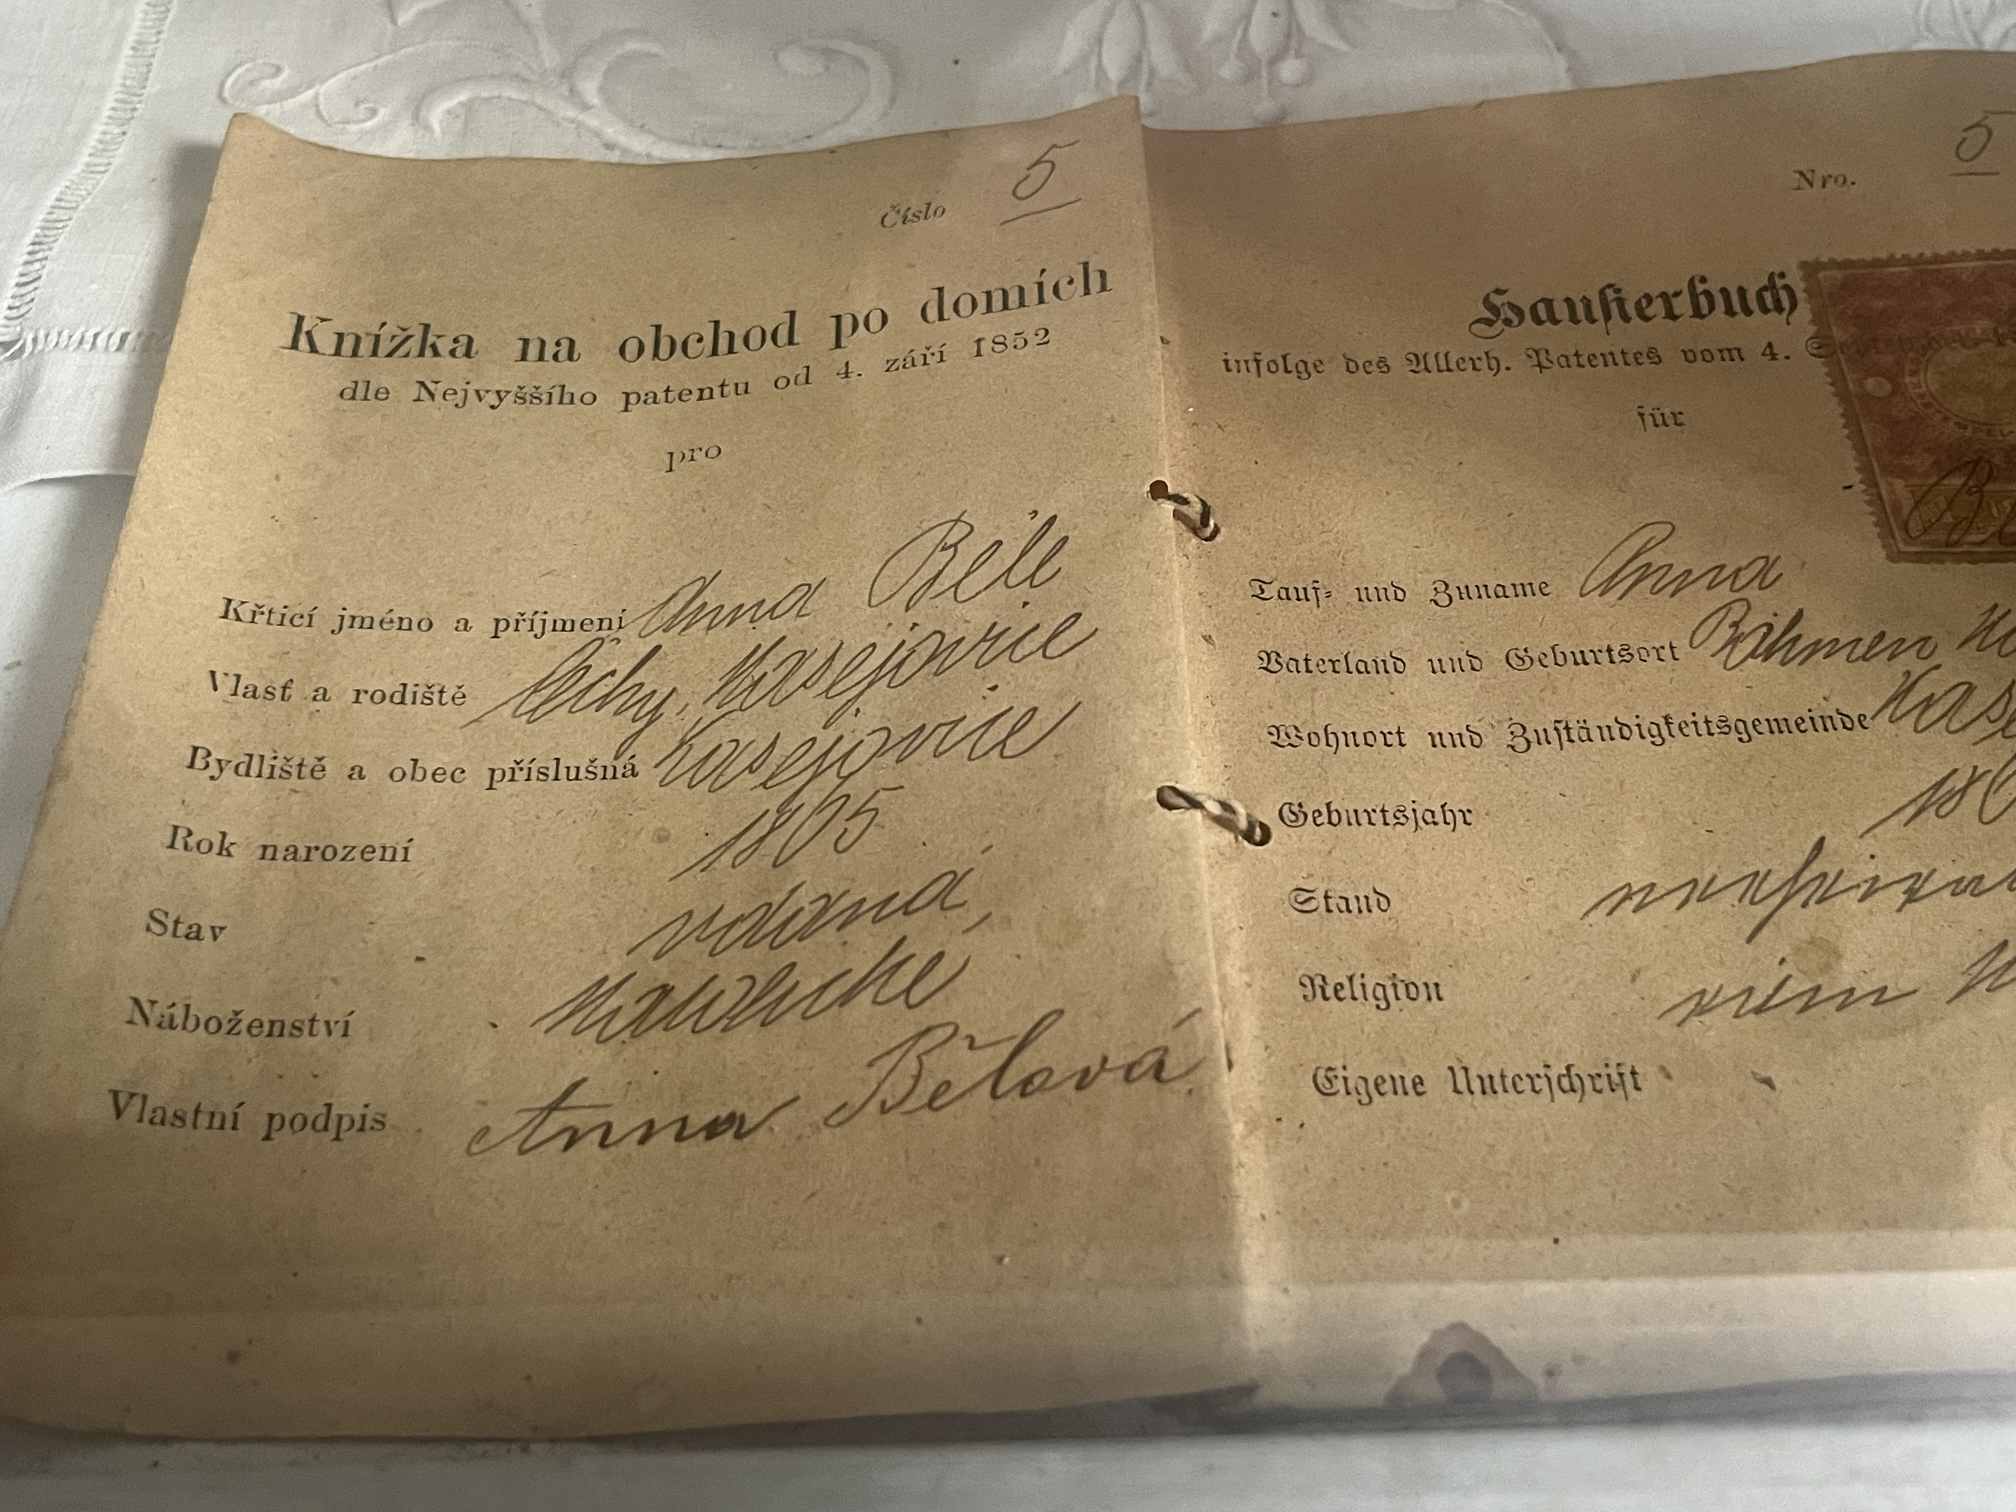 Číslo 5
Knížka na obchod po domích
dle Nejvyššího patentu od 4. září 1852
pro
Křticí jméno a příjmení Anna Běle
Vlasť a rodiště Čechy, Kasejovice
Bydliště a obec příslušná Kasejovice
Rok narození 1865
Stav vdaná,
Náboženství Katolické
Vlastní podpis Anna Bělová
Nro. 5
Hausierbuch
infolge des Allerh. Patentes vom 4.
für
Tauf- und Zuname Anna
Vaterland und Geburtsort Böhmen
Wohnort und Zuständigkeitsgemeinde
Geburtsjahr
Stand
Religion
Eigene Unterschrift